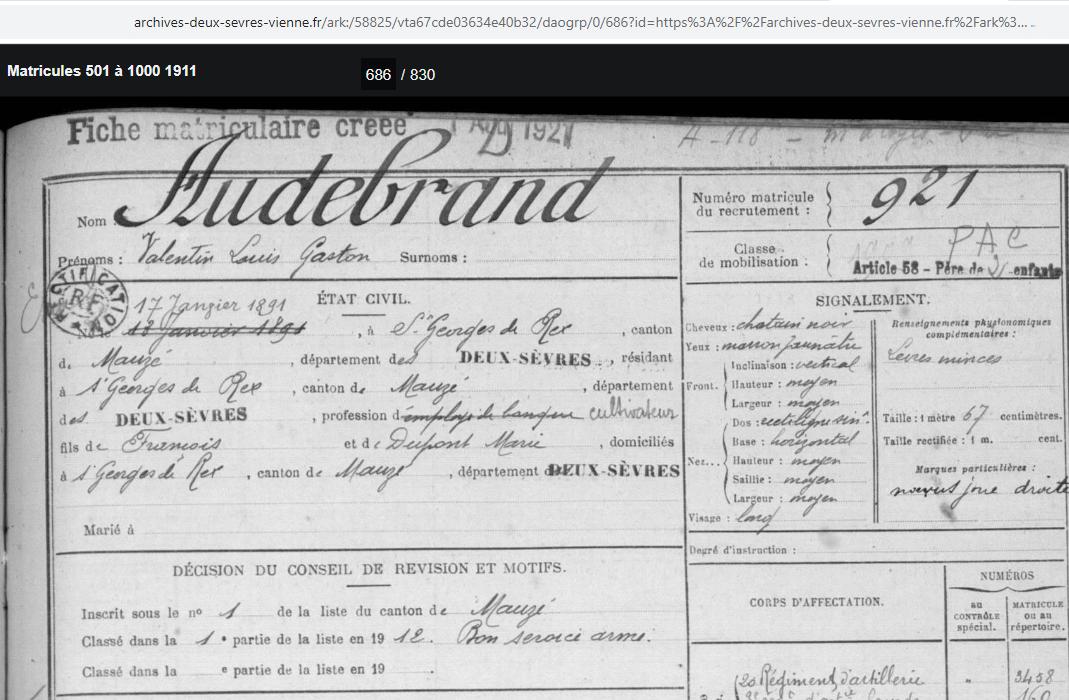 archives-deux-sevres-vienne.fr/ark:/58825/vta67cde03634e40b32/daogrp/0/686?id=https%3A%2F%2Farchives-deux-sevres-vienne.fr%2Fark%3...
Matricules 501 à 1000 1911
686 / 830
Fiche matriculaire créée 1 1921
Nom Audebrand
Prénoms : Valentin Louis Gaston Surnoms :
Numéro matricule
du recrutement :
921
Classe
de mobilisation :
PAC
Article 58 - Père de 2 enfants
RECTIFICATION
RF
ÉTAT CIVIL.
17 Janvier 1891
Né le 18 janvier 1891, à St Georges de Rex, canton
de Mauzé, département des DEUX-SÈVRES, résidant
à St Georges de Rex, canton de Mauzé, département
des DEUX-SÈVRES, profession d'employé de banque cultivateur
fils de François et de Dupont Marie, domiciliés
à St Georges de Rex, canton de Mauzé, département DEUX-SÈVRES
Marié à
SIGNALEMENT.
Cheveux : chatain noir
Yeux : marron jaunâtre
Front.
Inclinaison : vertical
Hauteur : moyen
Largeur : moyen
Nez...
Dos : rectiligne sin.
Base : horizontal
Hauteur : moyen
Saillie : moyen
Largeur : moyen
Visage : long
Renseignements physionomiques
complémentaires :
Lèvres minces
Taille : 1 mètre 67 centimètres.
Taille rectifiée : 1 m. cent.
Marques particulières :
noevus joue droite
Degré d'instruction :
DÉCISION DU CONSEIL DE REVISION ET MOTIFS.
Inscrit sous le no 1 de la liste du canton de Mauzé
Classé dans la 1e partie de la liste en 1912. Bon service armé.
Classé dans la e partie de la liste en 19 .
CORPS D'AFFECTATION.
NUMÉROS
au
CONTRÔLE
spécial.
MATRICULE
ou au
répertoire.
20 Régiment d'artillerie " 3458